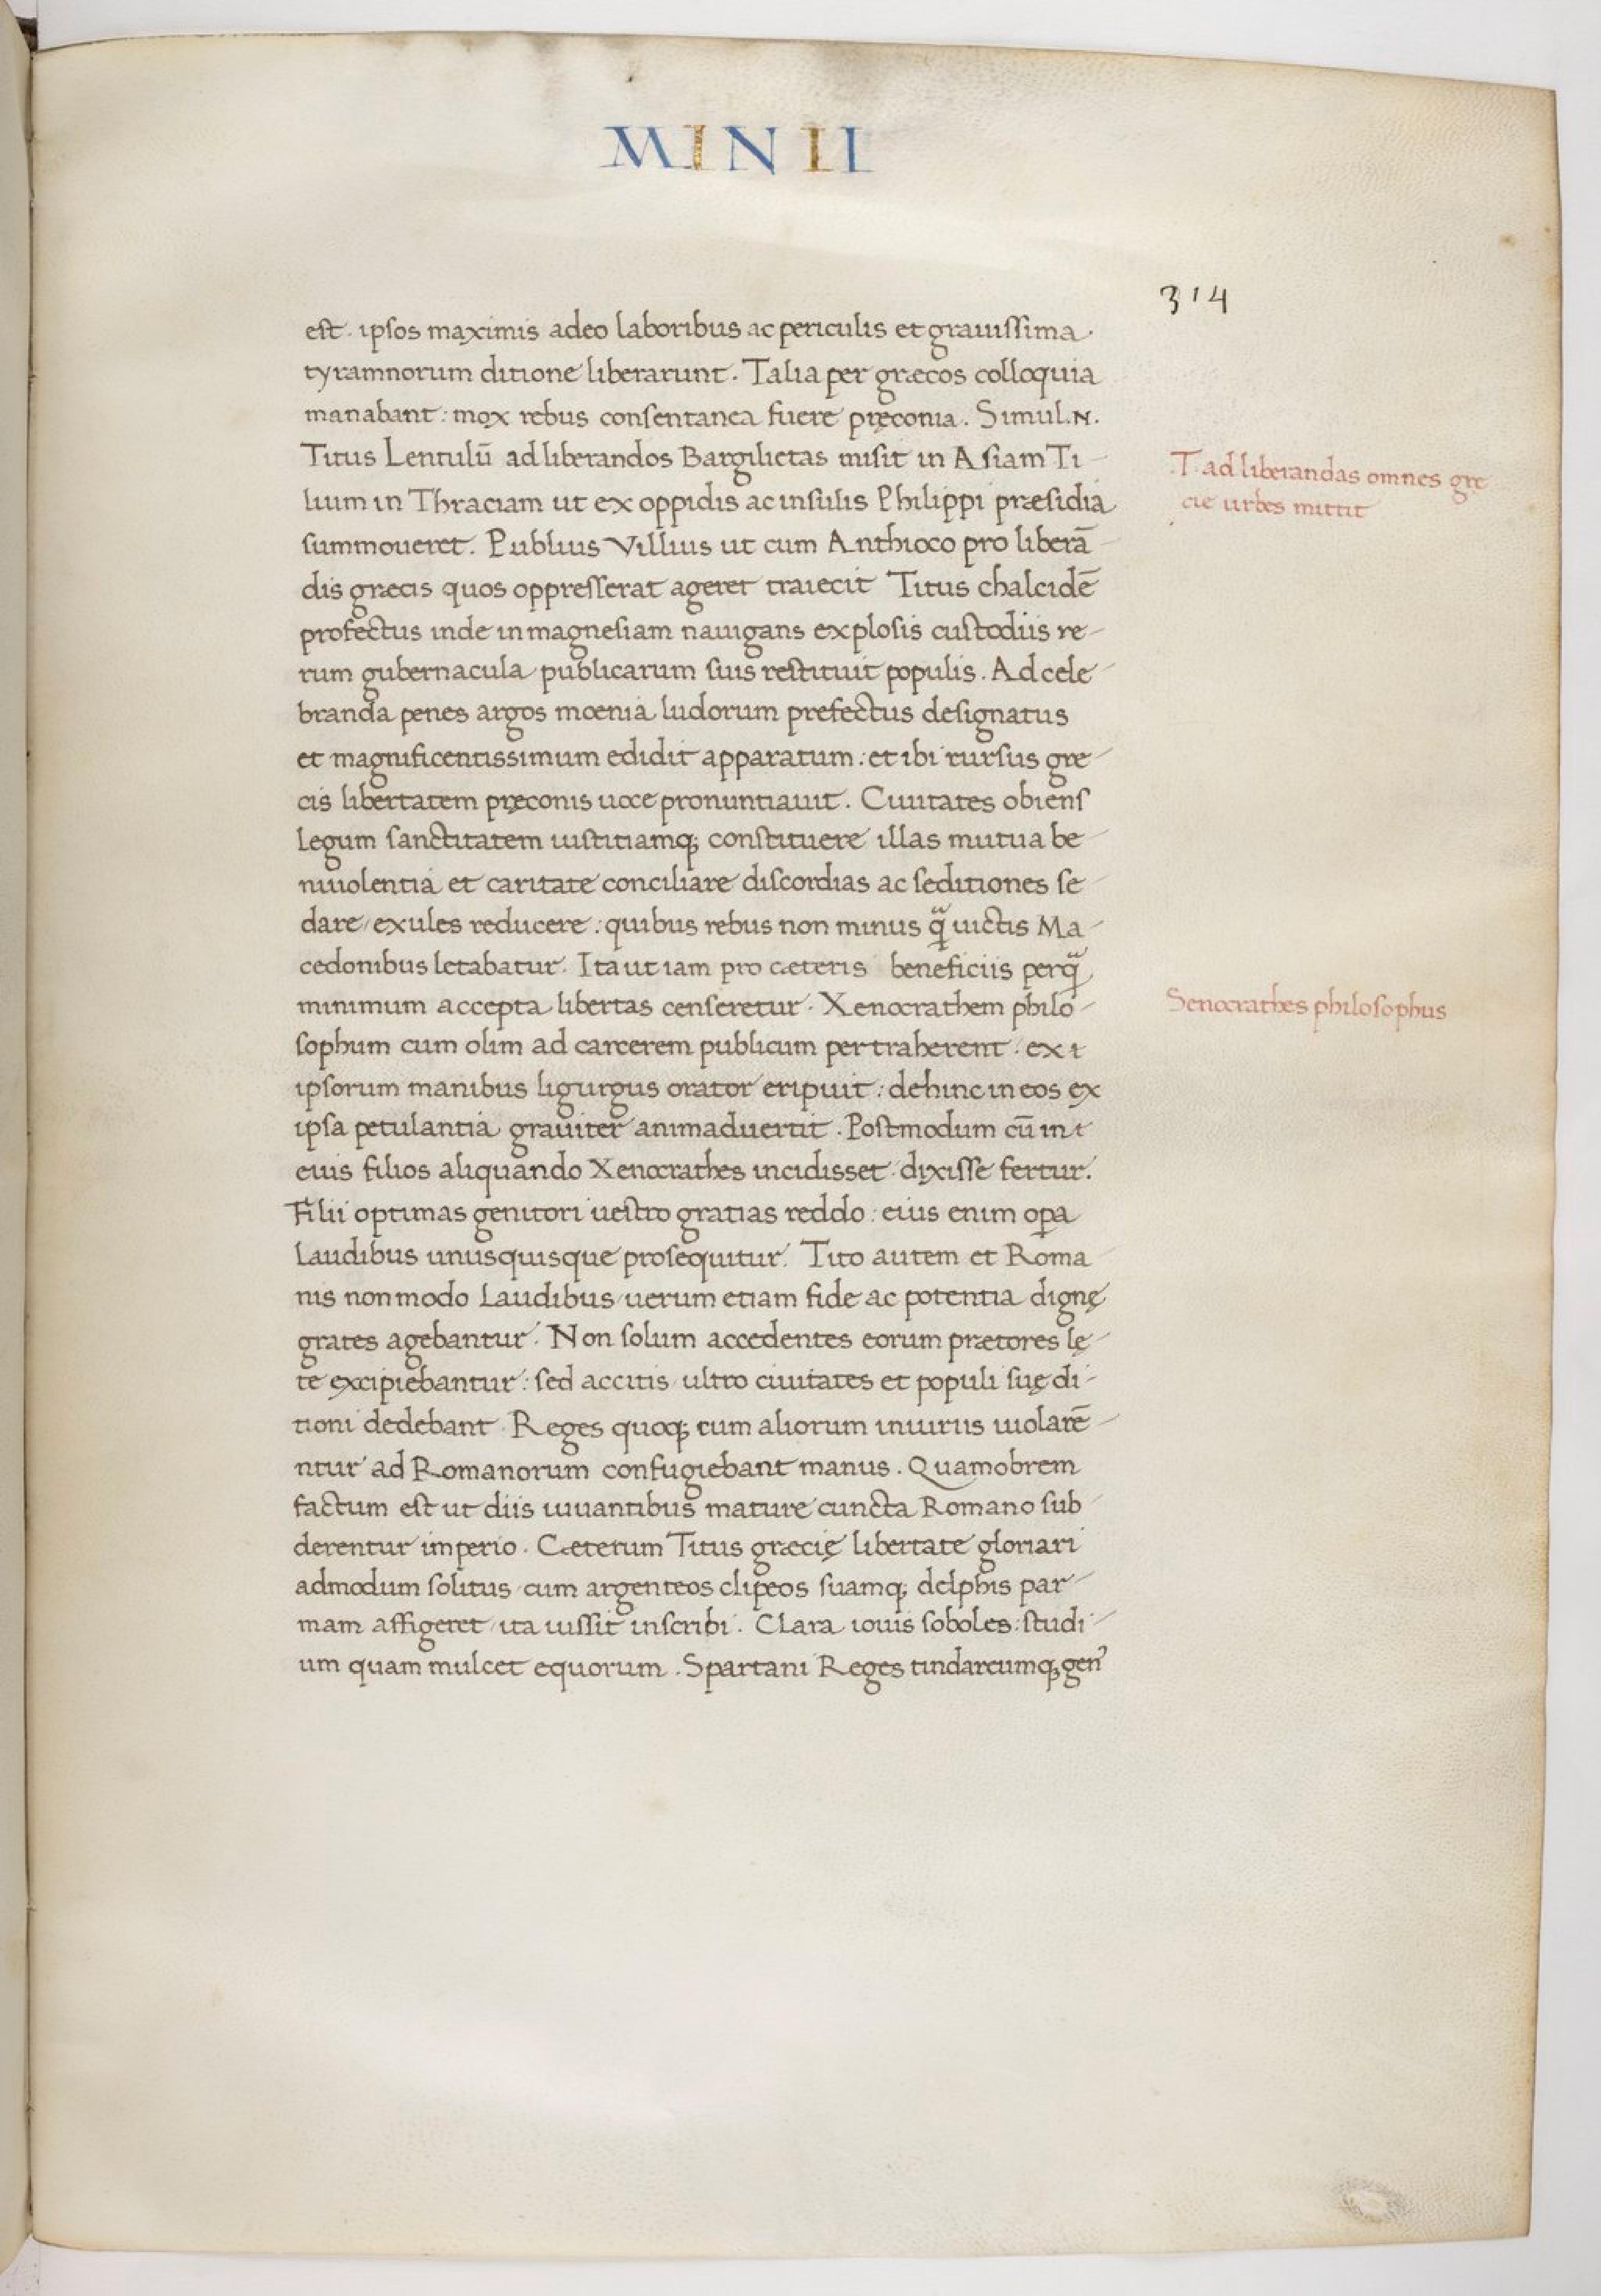 MINII
314
est. ipsos maximis adeo laboribus ac periculis et grauissima
tyramnorum ditione liberarunt. Talia per græcos colloquia
manabant: mox rebus consentanea fuere pręconia. Simul.N.
Titus Lentulū ad liberandos Bargilietas misit in Asiam Ti-
T. ad liberandas omnes grę
lium in Thraciam ut ex oppidis ac insulis Philippi præsidia
cie urbes mittit
summoueret. Publius Villius ut cum Anthioco pro liberā-
dis græcis quos oppresserat ageret traiecit Titus chalcidē
profectus inde in magnesiam nauigans explosis custodiis re-
rum gubernacula publicarum suis restituit populis. Ad cele-
branda penes argos moenia ludorum prefectus designatus
et magnificentissimum edidit apparatum: et ibi rursus gre-
cis libertatem pręconis uoce pronuntiauit. Ciuitates obiens
legum sanctitatem iustitiamq; constituere illas mutua be-
niuolentia et caritate conciliare discordias ac seditiones se-
dare/exules reducere: quibus rebus non minus q̃ uictis Ma-
cedonibus letabatur. Ita ut iam pro cæteris beneficiis perq̃
minimum accepta libertas censeretur. Xenocrathem philo-
Senocrathes philosophus
sophum cum olim ad carcerem publicum pertraherent. ex
ipsorum manibus ligurgus orator eripuit: dehinc in eos ex
ipsa petulantia grauiter animaduertit. Postmodum cū in
eius filios aliquando Xenocrathes incidisset. dixisse fertur.
Filii optimas genitori uestro gratias reddo: eius enim oꝑa
laudibus unusquisque prosequitur. Tito autem et Roma-
nis non modo laudibus/uerum etiam fide ac potentia dignę
grates agebantur. Non solum accedentes eorum prætores lę-
te excipiebantur: sed accitis/ultro ciuitates et populi suę di-
tioni dedebant. Reges quoq; cum aliorum iniuriis uiolarē-
ntur ad Romanorum confugiebant manus. Quamobrem
factum est ut diis iuuantibus mature cuncta Romano sub-
derentur imperio. Cæterum Titus græcię libertate gloriari
admodum solitus/cum argenteos clipeos suamq; delphis par-
mam affigeret/ita iussit inscribi. Clara iouis soboles: studi-
um quam mulcet equorum. Spartani Reges tindareumq; gen⁹